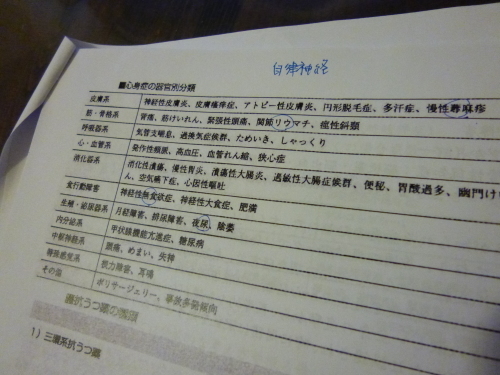 自律神経
■心身症の器官別分類
皮膚系 神経性皮膚炎、皮膚瘙痒症、アトピー性皮膚炎、円形脱毛症、多汗症、慢性蕁麻疹
筋・骨格系 背痛、筋けいれん、緊張性頭痛、関節リウマチ、痙性斜頸
呼吸器系 気管支喘息、過換気症候群、ためいき、しゃっくり
心・血管系 発作性頻脈、高血圧、血管れん縮、狭心症
消化器系 消化性潰瘍、慢性胃炎、潰瘍性大腸炎、過敏性大腸症候群、便秘、胃酸過多、幽門け
ん、空気嚥下症、心因性嘔吐
食行動障害 神経性無食欲症、神経性大食症、肥満
生殖・泌尿器系 月経障害、排尿障害、夜尿、陰萎
内分泌系 甲状腺機能亢進症、糖尿病
中枢神経系 頭痛、めまい、失神
特殊感覚系 視力障害、耳鳴
その他 ポリサージェリー、事故多発傾向
1）三環系抗うつ薬